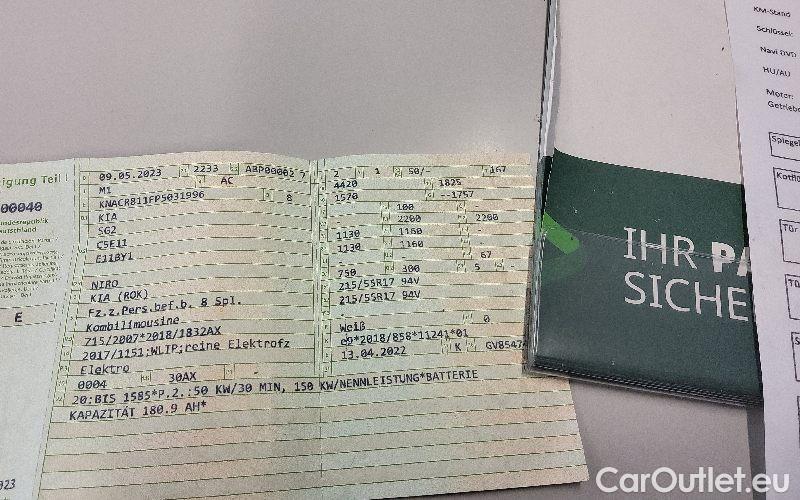 igung Teil I
00040
undesrepublik
eutschland
E
023
09.05.2023 2233 ABP00002 7
M1 AC
KNACR811FP5031996 8
KIA
SG2
C5E11
E11BY1
NIRO
KIA (ROK)
Fz.z.Pers.bef.b. 8 Spl.
Kombilimousine
715/2007*2018/1832AX
2017/1151;WLTP;reine Elektrofz
Elektro
0004 30AX -
20:BIS 1585*P.2.:50 KW/30 MIN, 150 KW/NENNLEISTUNG*BATTERIE
KAPAZITÄT 180.9 AH*
2 1 50/- 167
4420 1825
1570 --1757
100
2200 2200
1130 1160 -
1130 1160 -
67
750 300 5 -
215/55R17 94V
215/55R17 94V
-
Weiß 0
e9*2018/858*11241*01
13.04.2022 K GV8547
IHR PA
SICHE
KM-Stand
Schlüssel:
Navi DVD
HU/AU
Motor:
Getriebe
Spiegel
Kotflü
Tür
CarOutlet.eu